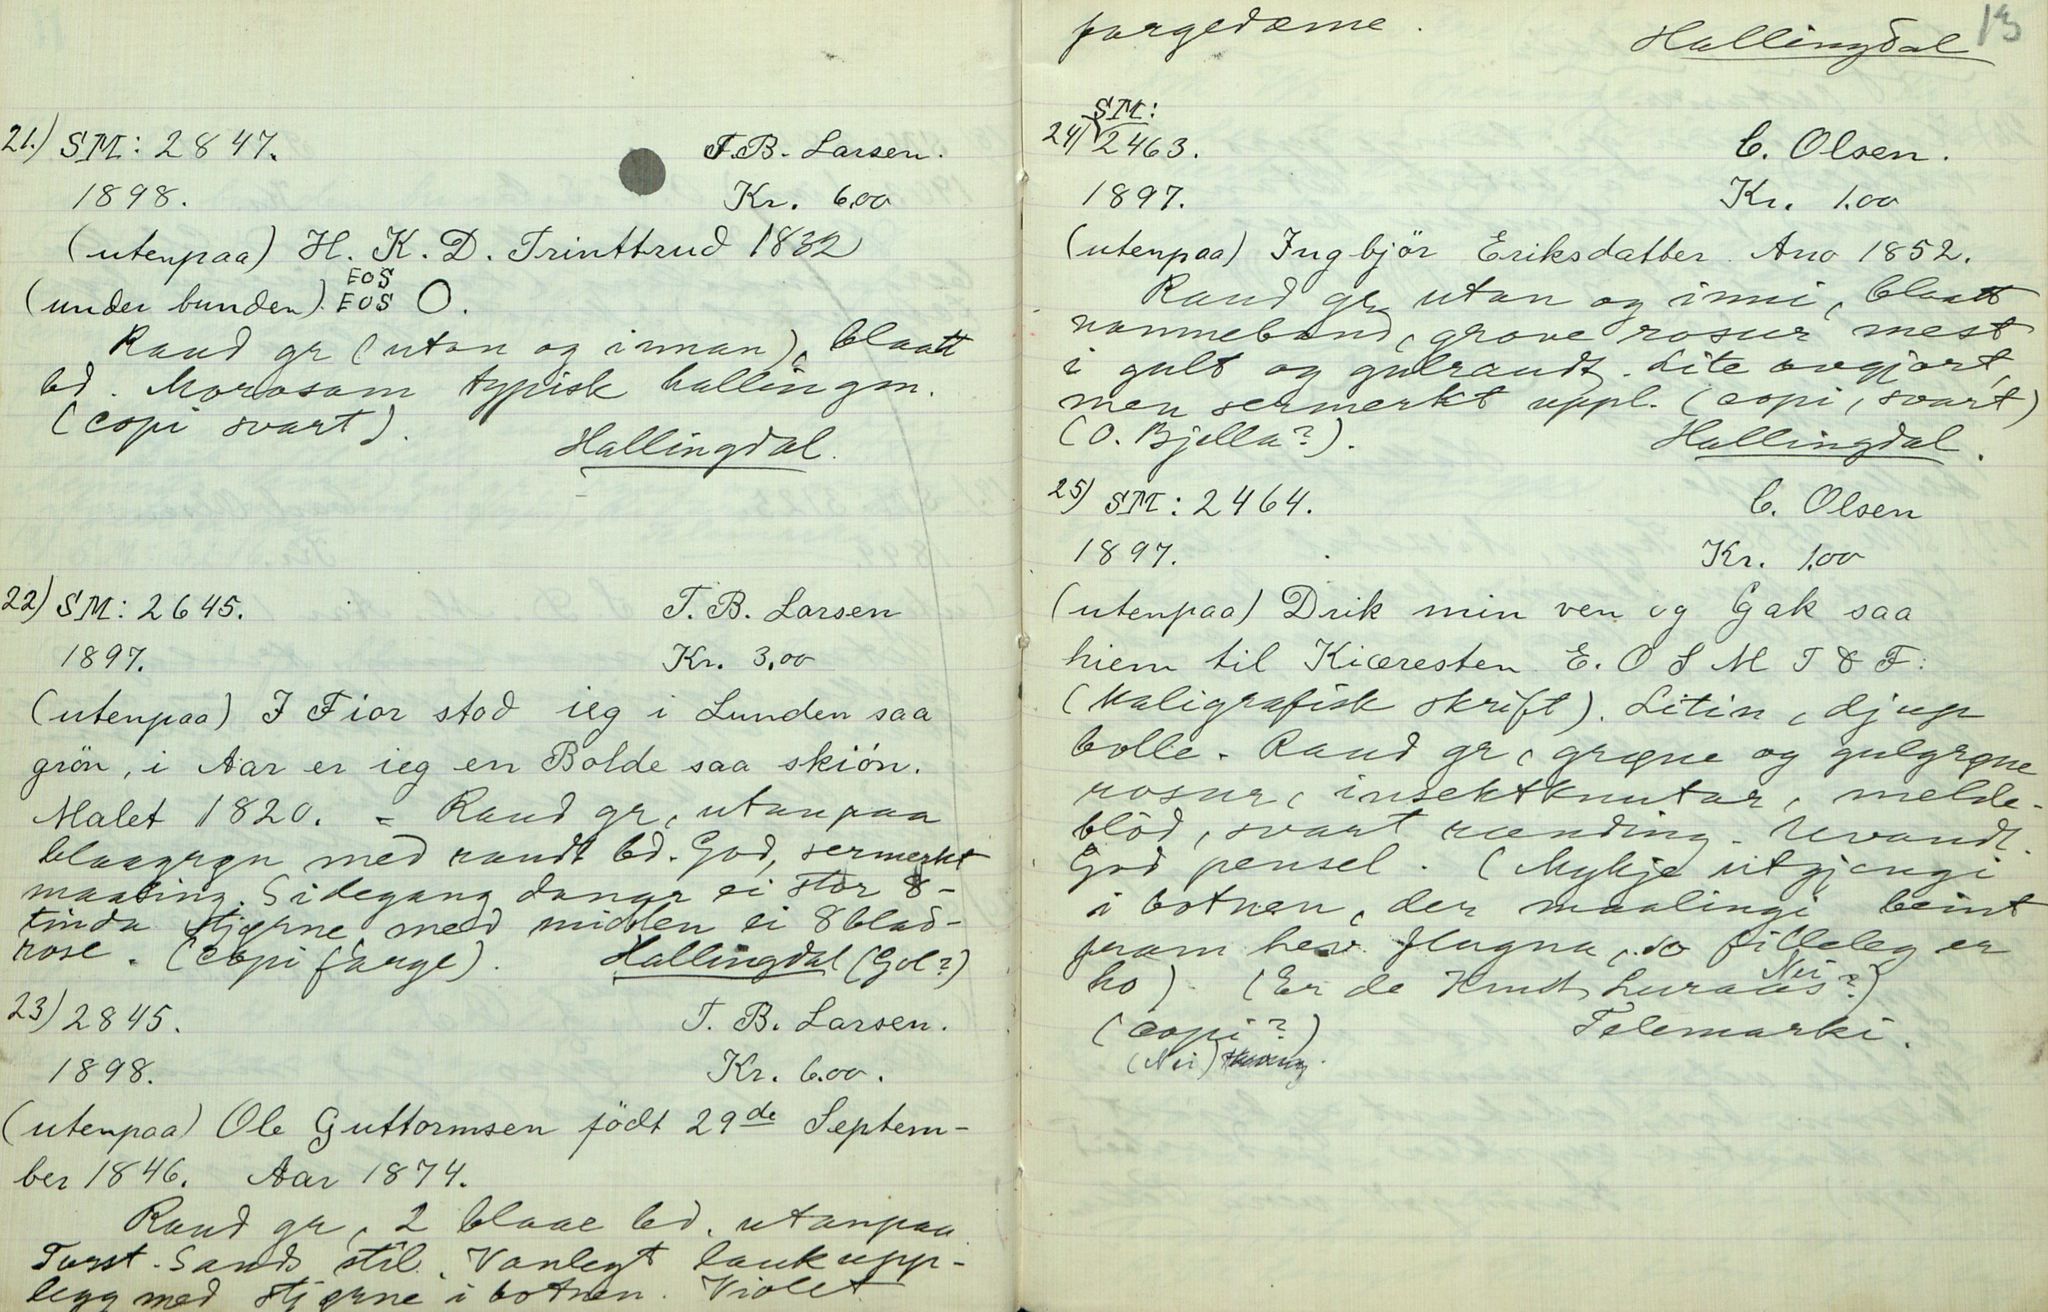 21.) SM: 2847. T.B. Larsen.
1898. Kr. 6.00
(utenpaa) H. K. D. Trinttrud 1832
EOS
(under bunden). EOS O.
Raud gr (utan og innan), blaatt
bd. Morosam typisk hallingm.
(copi svart).
Hallingdal.
22) SM: 2645. T. B. Larsen
1897. Kr. 3.00
(utenpaa) I Fior stod ieg i Lunden saa
grön, i Aar er ieg en Bolde saa skiön.
Malet 1820. - Raud gr, utanpaa
blaagrøn med raudt bd. God, sermerkt
maaling. Sidegang dannar ei stor 8-
tinda stjerne med midten ei 8 blad-
rose. (copi farge). Hallingdal (Gol?)
23) 2845. T. B. Larsen.
1898. Kr. 6.00.
(utenpaa) Ole Guttormsen födt 29de Septem-
ber 1846. Aar 1874.
Raud gr, 2 blaae bd. utanpaa
Turst. Sands stil. Vanlegt laukupp-
legg med stjerne i botnen. Violet
fargedæme.
Hallingdal
13
SM:
24) 2463. C. Olsen.
1897. Kr. 1.00
(utenpaa) Ingbjör Eriksdatter Ano 1852.
Raud gr utan og inni, blaatt
namneband, grove rosur mest
i gult og gulraudt. Lite avgjort,
men sermerkt uppl. (copi, svart)
(O. Bjella?). Hallingdal.
25) SM: 2464. C. Olsen
1897. Kr. 1.00
(utenpaa) Drik min ven og Gak saa
hiem til Kiæresten E. O S M T & F:
(Kaligrafisk skrift). Litin, djup
bolle. Raud gr, grøne og gulgrøne
rosur, insektknutar, melde-
blöd, svart rending. Uvandt.
God pensel. (Mykje utgjengi
i botnen, der maalingi beint
fram hev flugna, so filleleg er
ho) (Er de Knut Luraas?) Nei
(copi?) Telemarki.
(Nei)